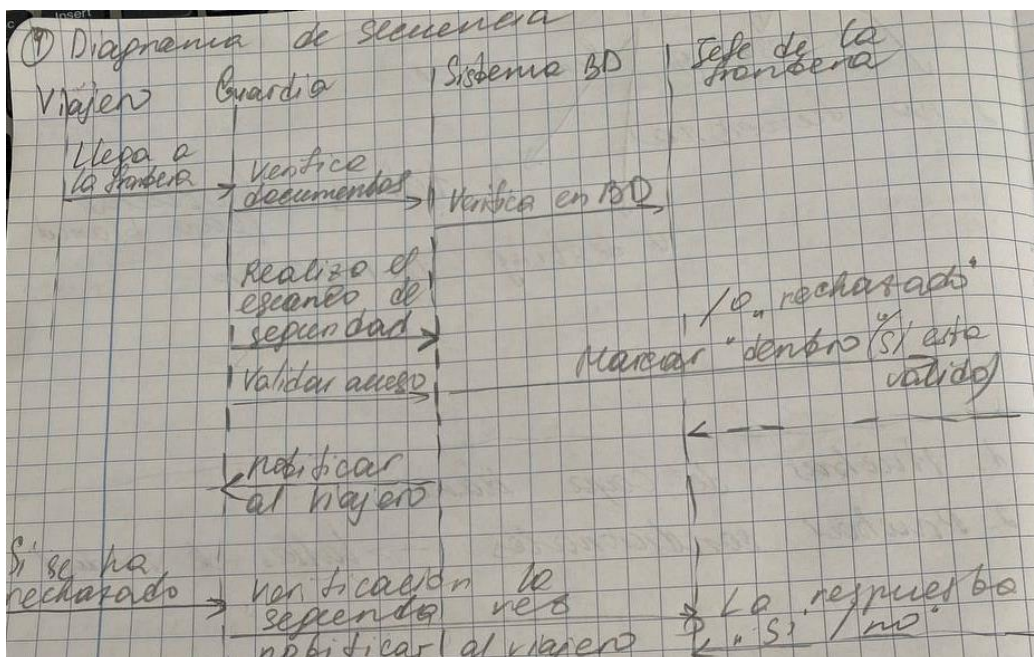 Insert
① Diagrama de secuencia
Viajero Guardia Sistema BD Jefe de la
frontera
Llega a
la frontera
Verifica
documentos
Verifica en BD
Realizo el
escaneo de
seguridad
/o „rechasado"
Marcar "dentro" (si esta
valido)
Validar acceso
notificar
al viajero
Si se ha
rechazado
verificación la
segunda vez
La respuesta
"Si" / "no"
notificar al viajero